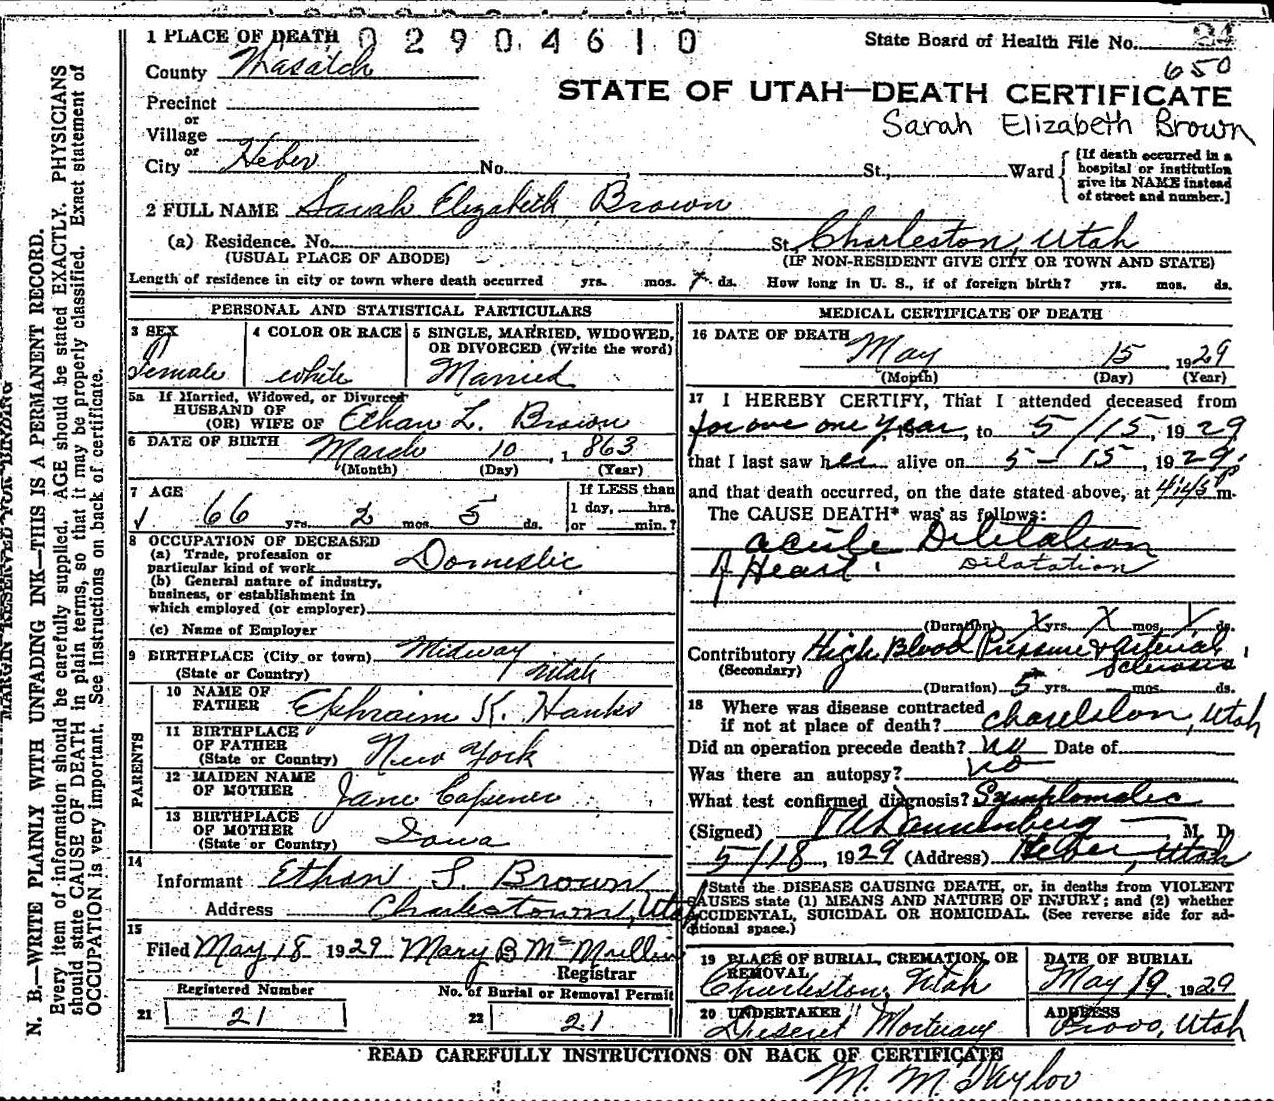 1 PLACE OF DEATH 02904610
State Board of Health File No. 24
650
County Wasatch
STATE OF UTAH—DEATH CERTIFICATE
Precinct
or
Sarah Elizabeth Brown
Village
or
City Heber No. St., Ward
[If death occurred in a
hospital or institution
give its NAME instead
of street and number.]
2 FULL NAME Sarah Elizabeth Brown
(a) Residence. No. St. Charleston, Utah
(USUAL PLACE OF ABODE) (IF NON-RESIDENT GIVE CITY OR TOWN AND STATE)
Length of residence in city or town where death occurred yrs. mos. ds. How long in U. S., if of foreign birth? yrs. mos. ds.
PERSONAL AND STATISTICAL PARTICULARS
3 SEX
Female
4 COLOR OR RACE
white
5 SINGLE, MARRIED, WIDOWED,
OR DIVORCED (Write the word)
Married
5a If Married, Widowed, or Divorced
HUSBAND OF
(OR) WIFE OF Ethan L. Brown
6 DATE OF BIRTH March 10, 1863
(Month) (Day) (Year)
7 AGE
66 yrs. 2 mos. 5 ds.
If LESS than
1 day, hrs.
or min.?
8 OCCUPATION OF DECEASED
(a) Trade, profession or
particular kind of work Domestic
(b) General nature of industry,
business, or establishment in
which employed (or employer)
(c) Name of Employer
9 BIRTHPLACE (City or town) Midway
(State or Country) Utah
PARENTS
10 NAME OF
FATHER Ephraim K. Hanks
11 BIRTHPLACE
OF FATHER
(State or Country) New York
12 MAIDEN NAME
OF MOTHER Jane Capener
13 BIRTHPLACE
OF MOTHER
(State or Country) Iowa
14
Informant Ethan L. Brown
Address Charlestown, Utah
15
Filed May 18 1929 Mary B McMullin
Registrar
Registered Number
21 21
No. of Burial or Removal Permit
22 21
MEDICAL CERTIFICATE OF DEATH
16 DATE OF DEATH
May 15 1929
(Month) (Day) (Year)
17 I HEREBY CERTIFY, That I attended deceased from
for over one year, 19 , to 5/15, 1929
that I last saw her alive on 5-15, 1929
and that death occurred, on the date stated above, at 4:45 p m.
The CAUSE DEATH* was as follows:
acute Dilitation
of Heart. Dilatation
(Duration) X yrs. X mos. 1 ds.
Contributory High Blood Pressure & Arterial
(Secondary) Sclerosis
(Duration) 5 yrs. mos. ds.
18 Where was disease contracted
if not at place of death? Charleston, Utah
Did an operation precede death? no Date of
Was there an autopsy? No
What test confirmed diagnosis? Symptomatic
(Signed) M. D.
5/18, 1929 (Address) Heber, Utah
*State the DISEASE CAUSING DEATH, or, in deaths from VIOLENT
CAUSES state (1) MEANS AND NATURE OF INJURY; and (2) whether
ACCIDENTAL, SUICIDAL OR HOMICIDAL. (See reverse side for ad-
ditional space.)
19 PLACE OF BURIAL, CREMATION, OR
REMOVAL
Charleston, Utah
DATE OF BURIAL
May 19 1929
20 UNDERTAKER
Deseret Mortuary
ADDRESS
Provo, Utah
READ CAREFULLY INSTRUCTIONS ON BACK OF CERTIFICATE
M. M. Taylor
MARGIN RESERVED FOR BINDING
N. B.—WRITE PLAINLY WITH UNFADING INK—THIS IS A PERMANENT RECORD.
Every item of information should be carefully supplied. AGE should be stated EXACTLY. PHYSICIANS
should state CAUSE OF DEATH in plain terms, so that it may be properly classified. Exact statement of
OCCUPATION is very important. See instructions on back of certificate.